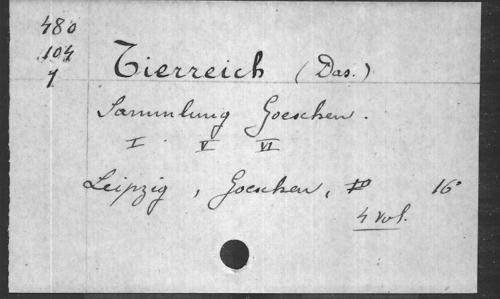 480
104
7
Tierreich (Das.)
Sammlung Goeschen.
I V VI
Leipzig, Goeschen, 16°
4 vol.